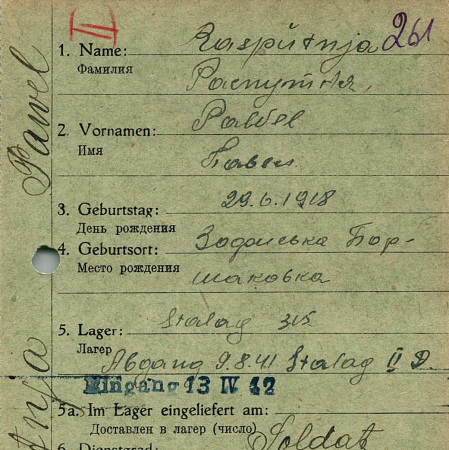 II
261
1. Name: Rasputnja
Фамилия Распутня,
2. Vornamen: Pawel
Имя Павел
3. Geburtstag: 29.6.1918
День рождения
4. Geburtsort: Бор-
Место рождения щаковка
5. Lager: Stalag 315
Лагерь
Abgang 9.8.41 Stalag II D.
Eingang 13 IV 42
5a. Im Lager eingeliefert am:
Доставлен в лагерь (число)
6. Dienstgrad: Soldat
Pawel